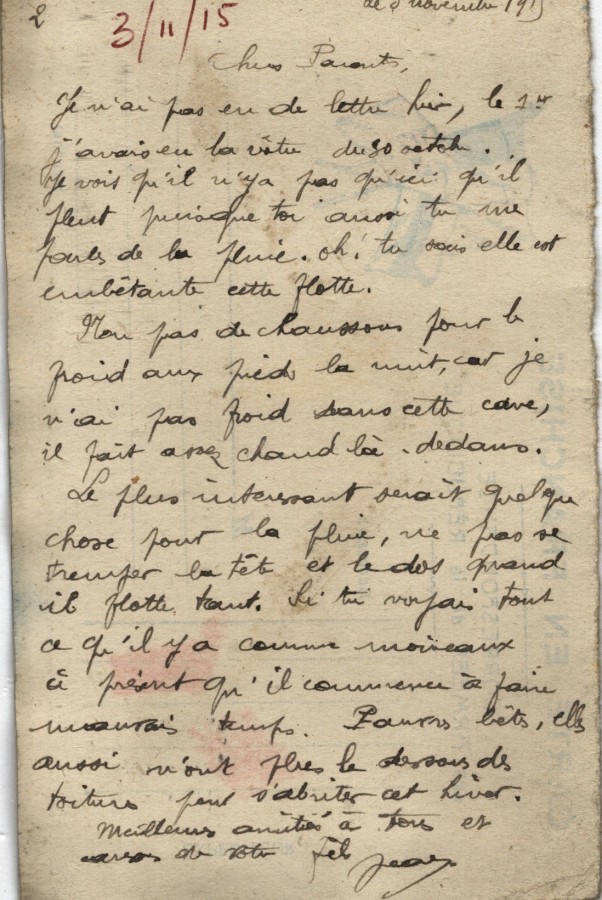 2
3/11/15
novembre 1915
Chers Parents,
Je n'ai pas eu de lettre hier, le 1er
j'avais eu la vôtre du 30 octob.
Je vois qu'il n'y a pas qu'ici qu'il
pleut puisque toi aussi tu me
parles de la pluie. oh! tu sais elle est
embêtante cette flotte.
Non pas de chaussons pour le
froid aux pieds la nuit, car je
n'ai pas froid dans cette cave,
il fait assez chaud là-dedans.
Le plus interessant serait quelque
chose pour la pluie, ne pas se
tremper la tête et le dos quand
il flotte tant. Si tu voyais tout
ce qu'il y a comme moineaux
à présent qu'il commence à faire
mauvais temps. Pauvres bêtes, elles
aussi n'ont plus le dessous des
toitures pour s'abriter cet hiver.
Meilleures amitiés à tous et
de votre fils Jean